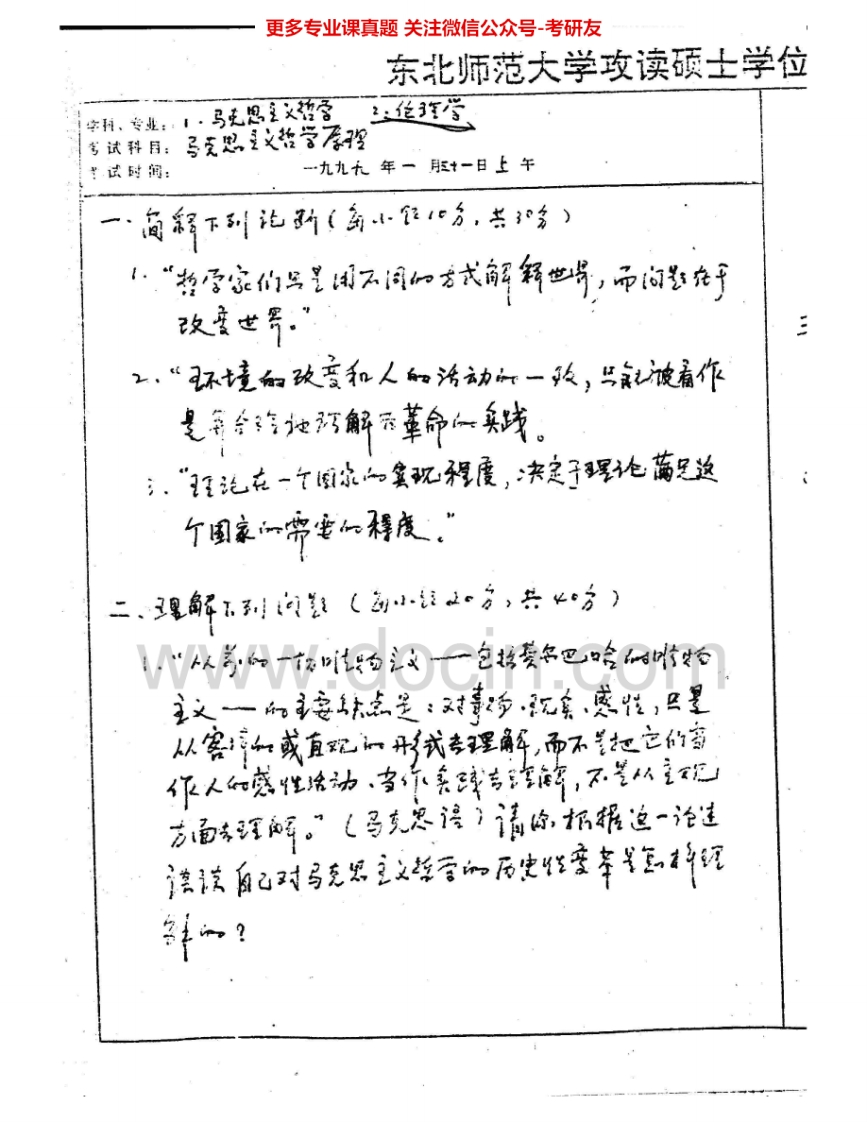 更多专业课真题 关注微信公众号-考研友
东北师范大学攻读硕士学位
学科、专业：1．马克思主义哲学 2．伦理学
考试科目：马克思主义哲学原理
考试时间：一九九九年一月三十一日上午
一、简释下列论断（每小题10分，共30分）
1．“哲学家们只是用不同的方式解释世界，而问题在于
改变世界。”
2．“环境的改变和人的活动的一致，只能被看作
是并合理地理解为革命的实践。
3．“理论在一个国家的实现程度，决定于理论满足这
个国家的需要的程度。”
二、理解下列问题（每小题20分，共40分）
1．“从前的一切唯物主义——包括费尔巴哈的唯物
主义——的主要缺点是：对事物、现实、感性，只是
从客体的或直观的形式去理解，而不是把它们当
作人的感性活动，当作实践去理解，不是从主观
方面去理解。”（马克思语）请你根据这一论述
谈谈自己对马克思主义哲学的历史性变革是怎样理
解的？
www.docin.com
三